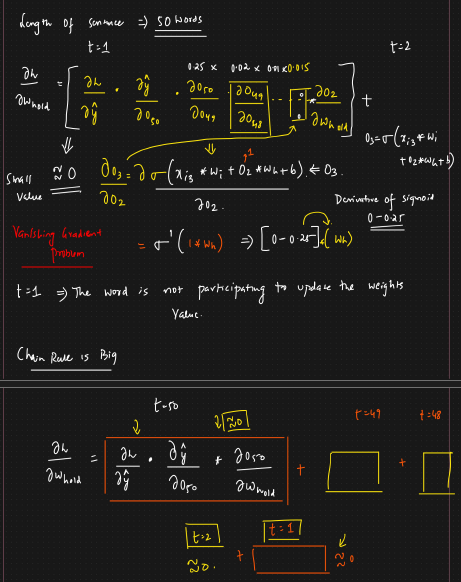 Length of sentence ⇒ 50 words
t=1 t=2
0.25 × 0.02 × 0.01 × 0.015
∂L/∂Whold = [ ∂L/∂ŷ · ∂ŷ/∂O50 · ∂O50/∂O49 · ∂O49/∂O48 ---- * ∂O2/∂Whold ] +
O3=σ(xi3 * wi + O2 * wh + b)
Small value ≈ 0
∂O3/∂O2 = ∂σ(xi3 * wi + O2 * wh + b) ⇐ O3.
∂O2.
Derivative of sigmoid
0-0.25
Vanishing Gradient Problem
= σ'(1 * wh) ⇒ [0-0.25] * (wh)
t=1 ⇒ The word is not participating to update the weights
value.
Chain Rule is Big
t=50 t=49 t=48
≈0
∂L/∂Whold = ∂L/∂ŷ · ∂ŷ/∂O50 * ∂O50/∂Whold + +
t=2 t=1
≈0. + ≈0